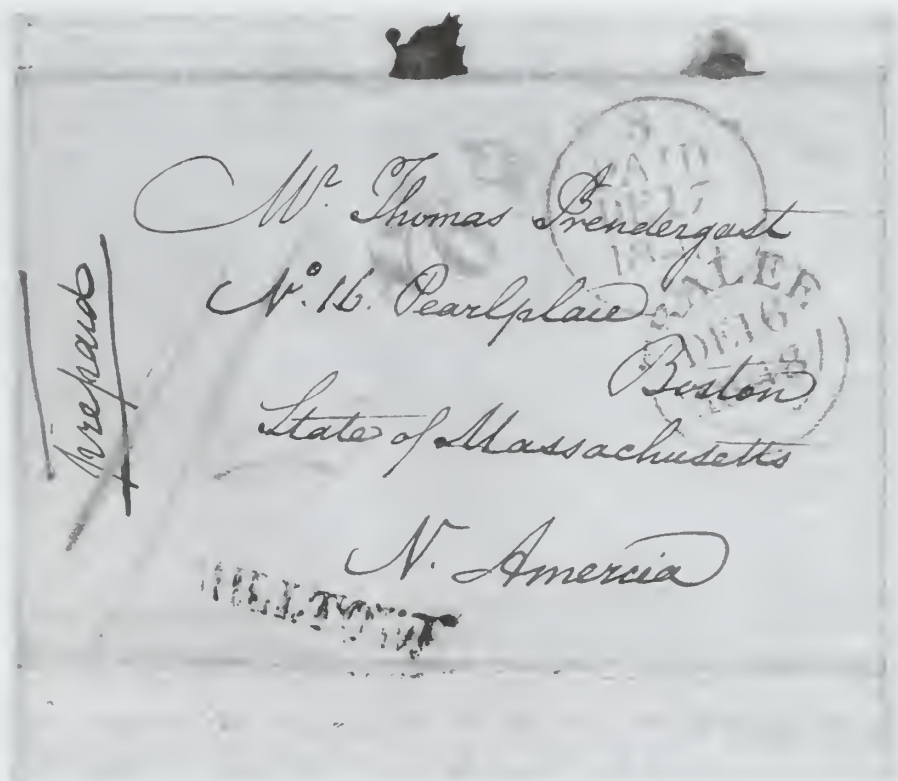 Mr. Thomas Prendergast
No. 16. Pearlplace
Boston
State of Massachusetts
N. Amercia
Prepaid
PAID
DE 16